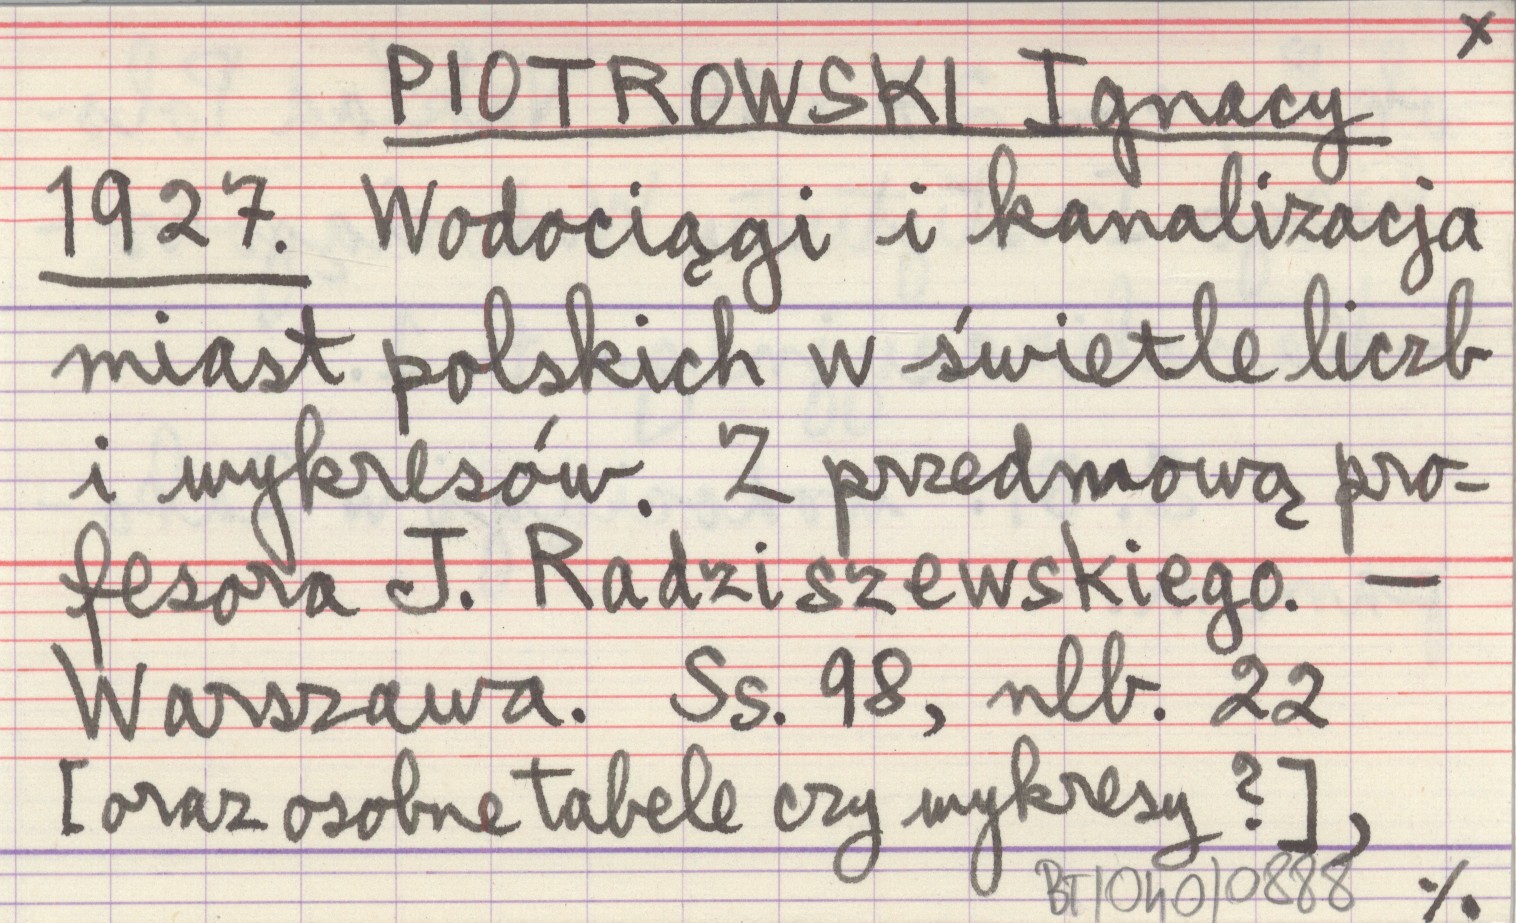 x
PIOTROWSKI Ignacy
1927. Wodociągi i kanalizacja
miast polskich w świetle liczb
i wykresów. Z przedmową pro-
fesora J. Radziszewskiego. —
Warszawa. Ss. 98, nlb. 22
[oraz osobne tabele czy wykresy ?],
BT/040/0888 ./.